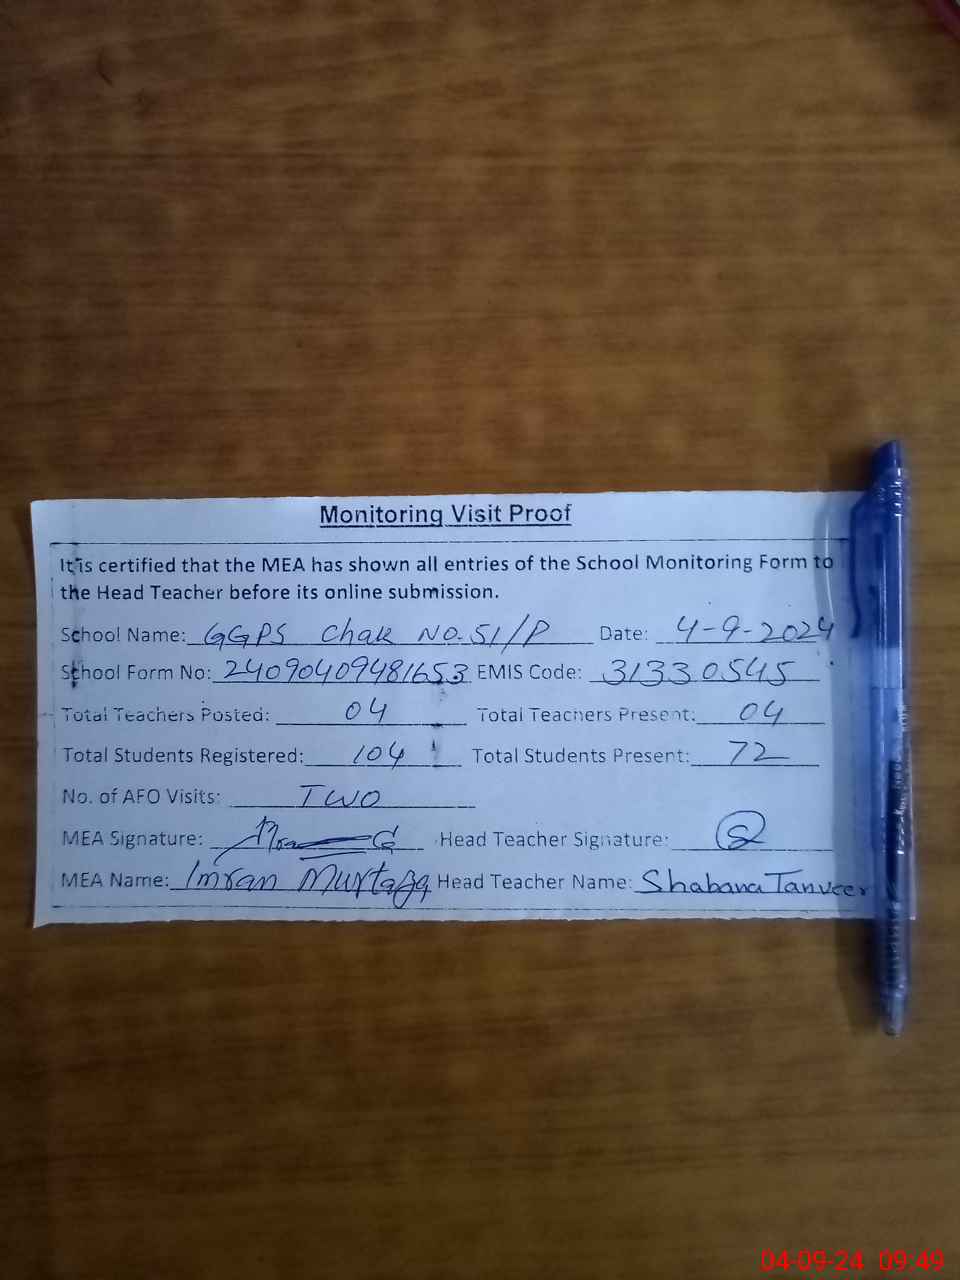 Monitoring Visit Proof
It is certified that the MEA has shown all entries of the School Monitoring Form to
the Head Teacher before its online submission.
School Name: GGPS Chak No. 51/P Date: 4-9-2024
School Form No: 24090409481653 EMIS Code: 31330545
Total Teachers Posted: 04 Total Teachers Present: 04
Total Students Registered: 104 Total Students Present: 72
No. of AFO Visits: Two
MEA Signature: Head Teacher Signature:
MEA Name: Imran Murtaza Head Teacher Name: Shabana Tanveer
04-09-24 09:49